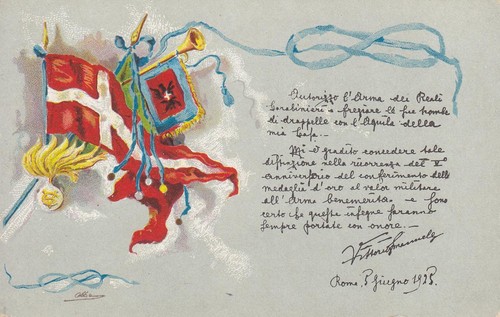 Autorizzo l'Arma dei Reali
Carabinieri a fregiare le sue trombe
di drappelle con l'Aquila della
mia Casa.
Mi è gradito concedere tale
distinzione nella ricorrenza del V°
anniversario del conferimento della
medaglia d'oro al valor militare
all'Arma benemerita e sono
certo che queste insegne saranno
sempre portate con onore.
Vittorio Emanuele
Roma, 5 Giugno 1925.